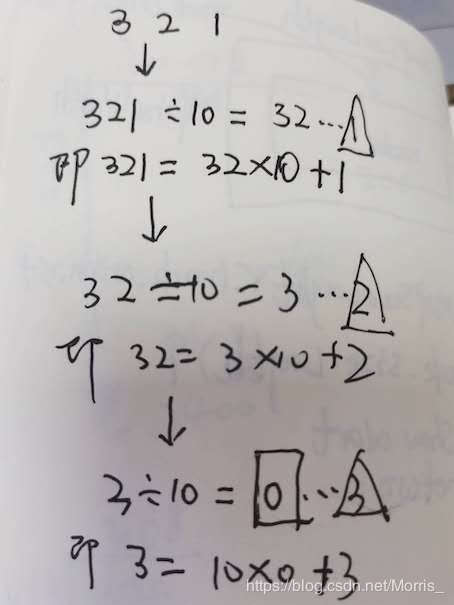 3 2 1
↓
321 ÷10 = 32...1
即 321 = 32×10+1
↓
32 ÷10 = 3...2
即 32= 3×10+2
↓
3÷10 = 0...3
即 3= 10×0+3
https://blog.csdn.net/Morris_